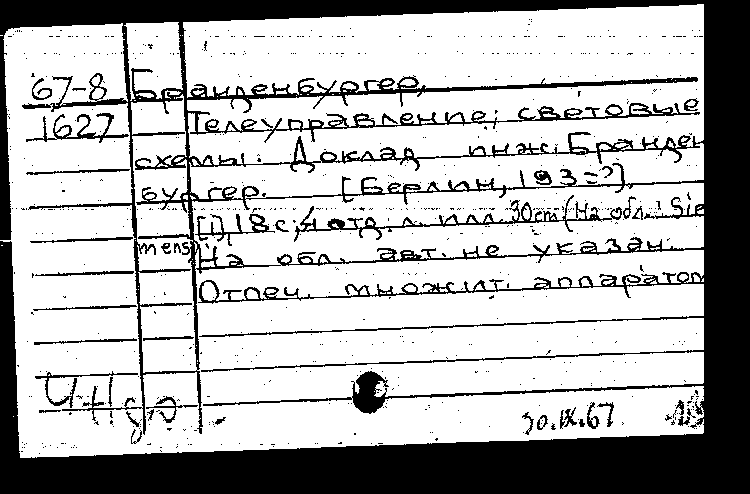 67-8 Бранденбургер,
1627 Телеуправление; световые
схемы. Доклад инж. Бранден
бургер. [Берлин, 193=?].
[1], 18 с; 4 отд. л. илл. 30cm (На обл.: Sie
mens)
На обл. авт. не указан.
Отпеч. множит. аппаратом
30.IX.67